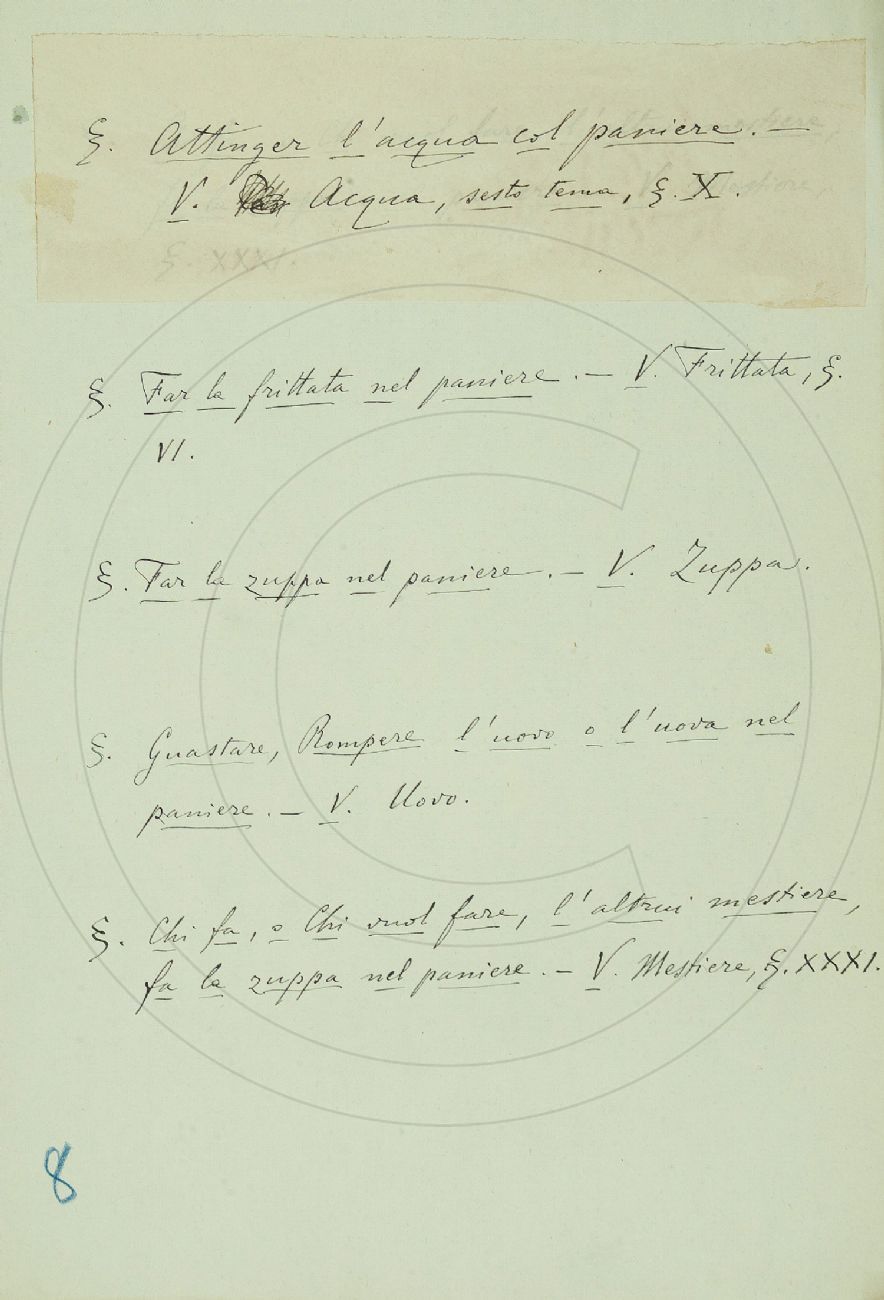 §. Attinger l'acqua col paniere. —
V. Acqua, sesto tema, §. X.
§. Far la frittata nel paniere. — V. Frittata, §.
VI.
§. Far la zuppa nel paniere. — V. Zuppa.
§. Guastare, Rompere l'uovo o l'uova nel
paniere. — V. Uovo.
§. Chi fa, o Chi vuol fare, l'altrui mestiere,
fa la zuppa nel paniere. — V. Mestiere, §. XXXI.
8